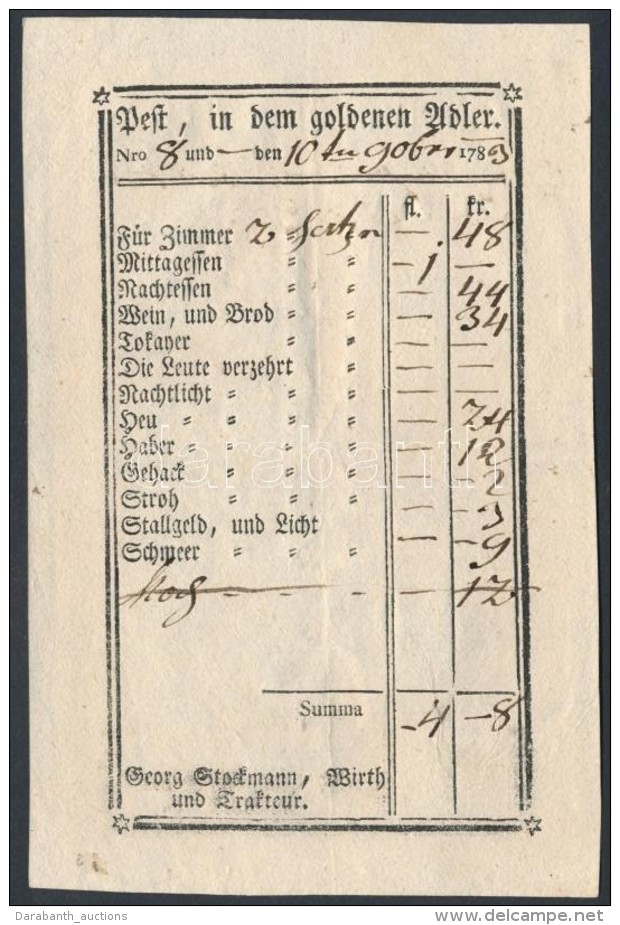 Pest, in dem goldenen Adler.
Nro 8 und — den 10 9obr 1783
fl. kr.
Für Zimmer 2 — 48
Mittagessen " " — 1 —
Nachtessen " " — 44
Wein, und Brod " " — 34
Tokayer " " — —
Die Leute verzehrt " — —
Nachtlicht " " " — —
Heu " " " " — 24
Haber " " " " — 12
Gehack " " " — — 2
Stroh " " " — — 3
Stallgeld, und Licht — — 9
Schmeer " " " 
— 12
Summa — 4 — 8
Georg Stockmann, Wirth
und Trakteur.
darabanth
Darabanth_auctions
delcampe.net